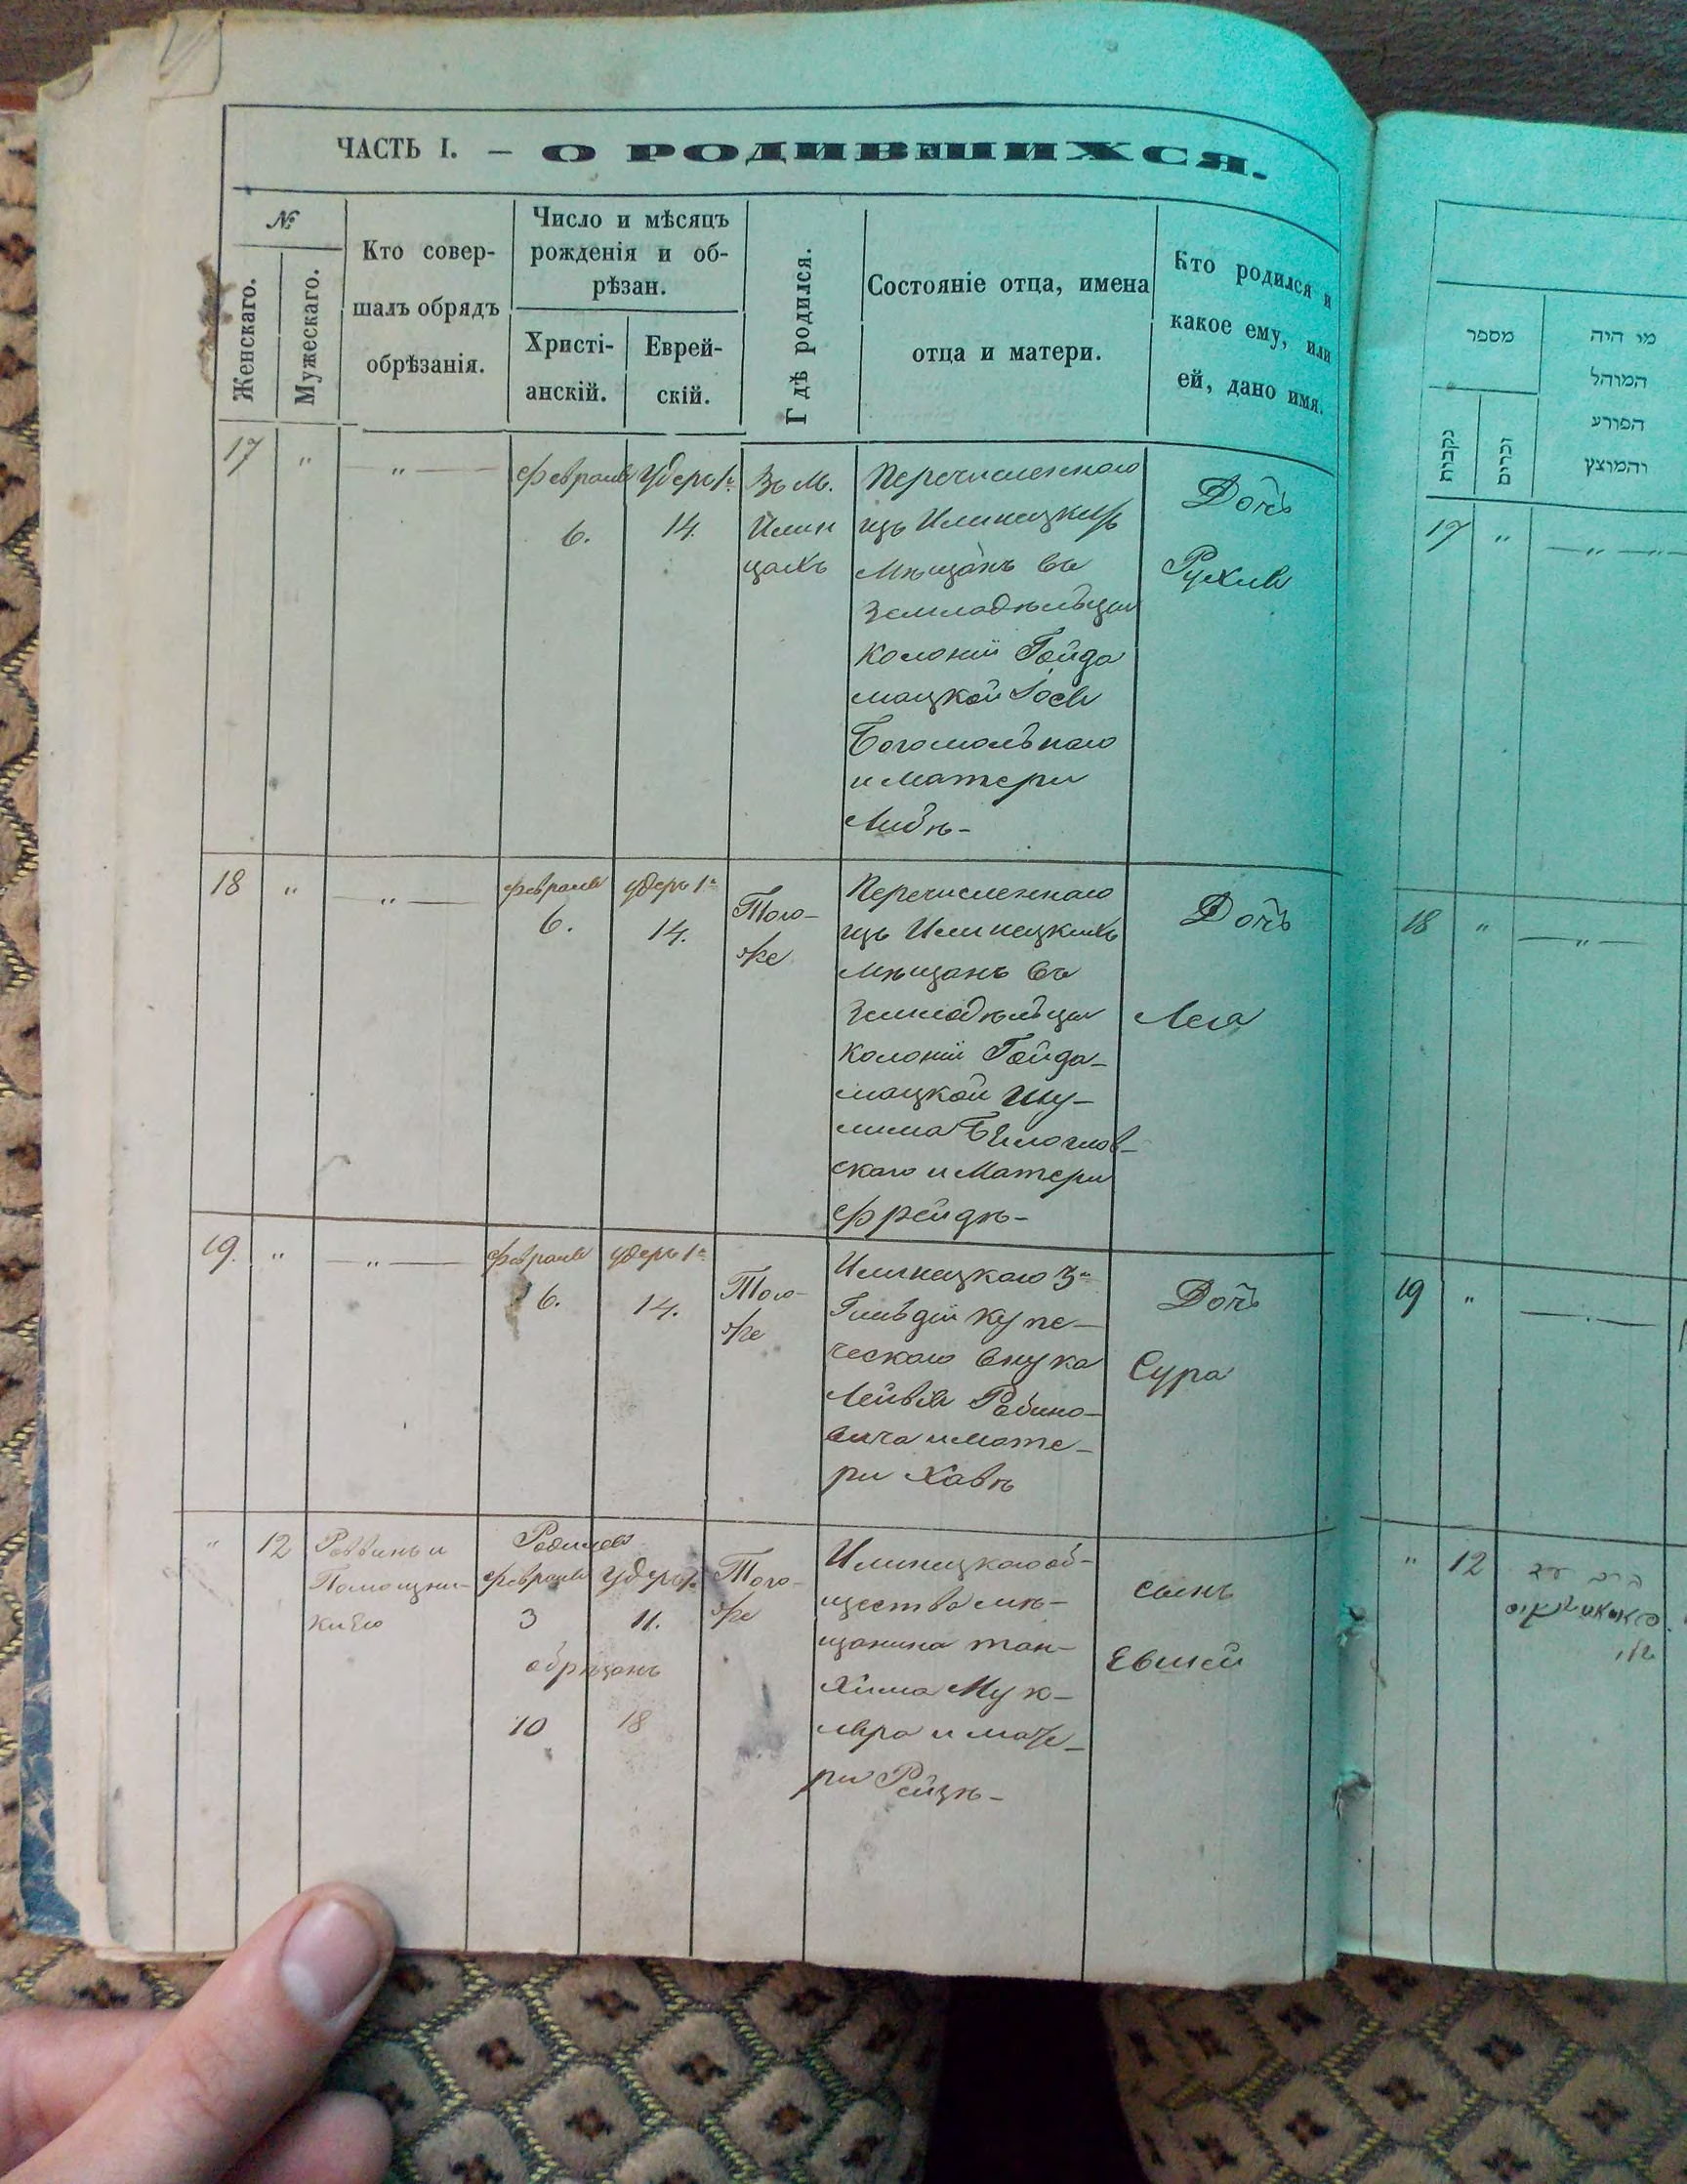 ЧАСТЬ I. — О РОДИВШИХСЯ.
№
Женскаго.
Мужескаго.
Кто совер-
шалъ обрядъ
обрѣзанія.
Число и мѣсяцъ
рожденія и об-
рѣзан.
Христі-
анскій.
Еврей-
скій.
Гдѣ родился.
Состояніе отца, имена
отца и матери.
Кто родился и
какое ему, или
ей, дано имя.
17 „ — „ —
Февраля
6.
14.
Въ М.
Илин
цахъ
Перечисленнаго
изъ Илинецкихъ
Мѣщанъ въ
Земледѣльцы
Колоніи Гайда
мацкой Іося
Богомольнаго
и Матери
Либѣ-
Дочь
Рухля
18 „ — „ —
Февраля
6.
14.
Того-
же
Перечисленнаго
изъ Илинецкихъ
Мѣщанъ въ
Земледѣльцы
Колоніи Гайда-
мацкой Шу-
лима
скаго и Матери
Фрейдѣ-
Дочь
Лея
19. „ — „ —
Февраля
6.
14.
Того-
же
Илинецкаго 3й
Гильдіи Купе-
ческаго внука
Лейбы Рабино-
вича и мате-
ри Хавѣ
Дочь
Сура
„ 12
Раввинъ и
Помощни-
Родился
Февраля
3
11.
обрѣзанъ
10 18
Того-
же
Илинецкаго об-
щества мѣ-
щанина Тан-
хима Мук-
ляра и мате-
ри Рейзѣ-
сынъ
Евсей
מספר
נקבות
זכרים
מי היה
המוהל
הפורע
והמוצץ
17 „ — „ — „ —
18 „ — „ —
19 „ — . —
„ 12